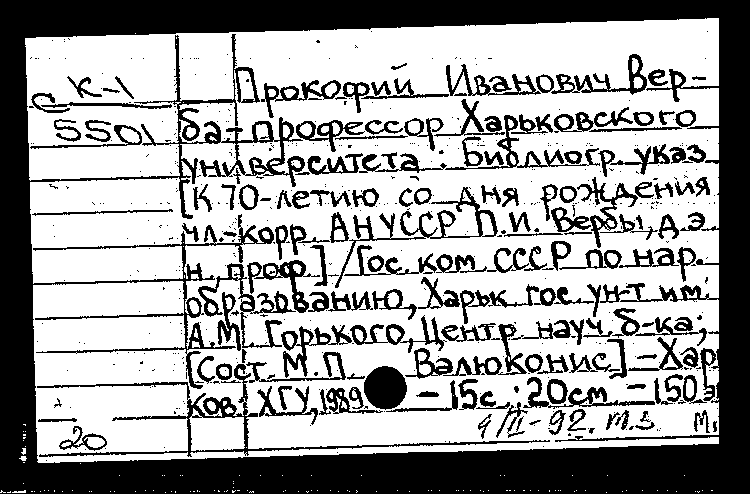 К-1
С
5501
Прокофий Иванович Вер-
ба - профессор Харьковского
университета : Библиогр. указ
[К 70-летию со дня рождения
чл.-корр. АНУССР П.И. Вербы, д.э.
н., проф.] / Гос. ком. СССР по нар.
образованию, Харьк. гос. ун-т им.
А.М. Горького, Центр. науч. б-ка;
[Сост. М.П. Валюконис] - Хар
ков: ХГУ, 1989 - 15с. : 20см. - 150 э
20